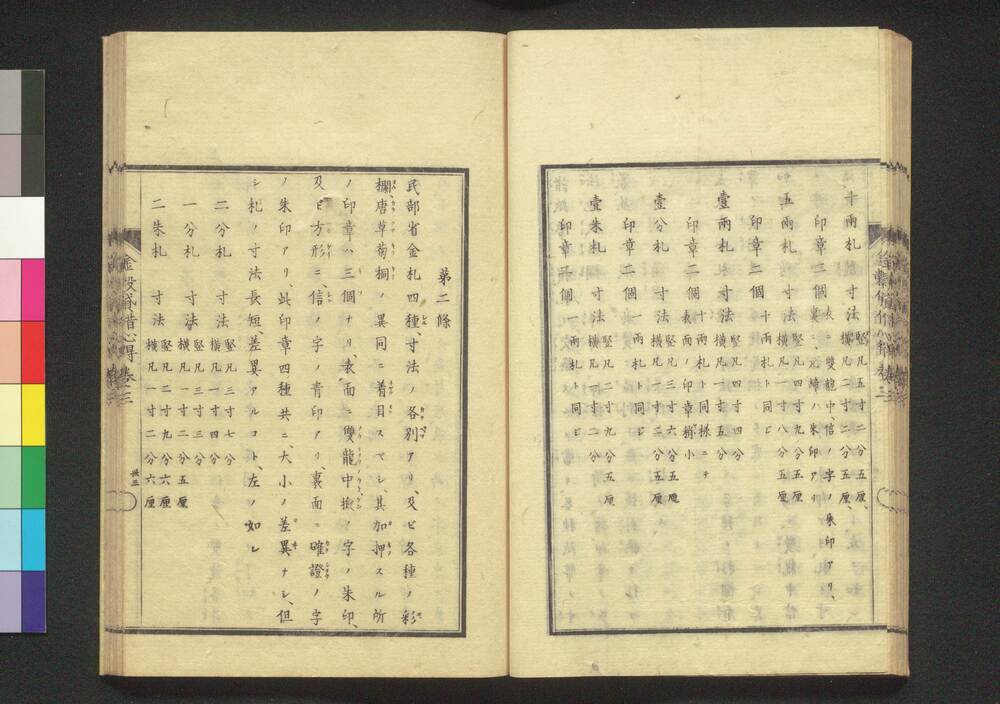 十兩札 寸法 竪凡五寸二分五厘、
横凡二寸二分五厘、
印章二個 表ニ雙龍中、信ノ字ノ朱印アリ、
裏ニ、凡縛ノ朱印アリ
五兩札 寸法 竪凡四寸九分五厘
横凡一寸八分五厘
印章二個 十兩札ト同ヒ
壹兩札 寸法 竪凡四寸四分
横凡一寸五分
印章二個 十兩札ト同様ニテ
表面ノ印章稍小
壹分札 寸法 竪凡三寸六分五厘
横凡一寸二分五厘
印章二個 一兩札ト同ヒ
壹朱札 寸法 竪凡二寸九分五厘
横凡一寸二分
印章二個 一兩札ト同ヒ
第二條
民部省金札四種、寸法ノ各別アリ、及ヒ各種ノ彩
欄唐草蔔桐ノ異同ニ着目スヘシ、其加押スル所
ノ印章ハ三個ナリ、表面ニ雙龍中撿ノ字ノ朱印、
及ヒ方形ニ、信ノ字ノ青印アリ、裏面ニ確證ノ字
ノ朱印アリ、此印章四種共ニ、大小ノ差異ナシ、但
シ札ノ寸法長短、差異アルコト、左ノ如シ
二分札 寸法 竪凡三寸七分
横凡一寸四分
一分札 寸法 竪凡三寸三分
横凡一寸二分五厘
二朱札 寸法 竪凡二寸九分六厘
横凡一寸二分六厘
金穀貸借心得 卷之三